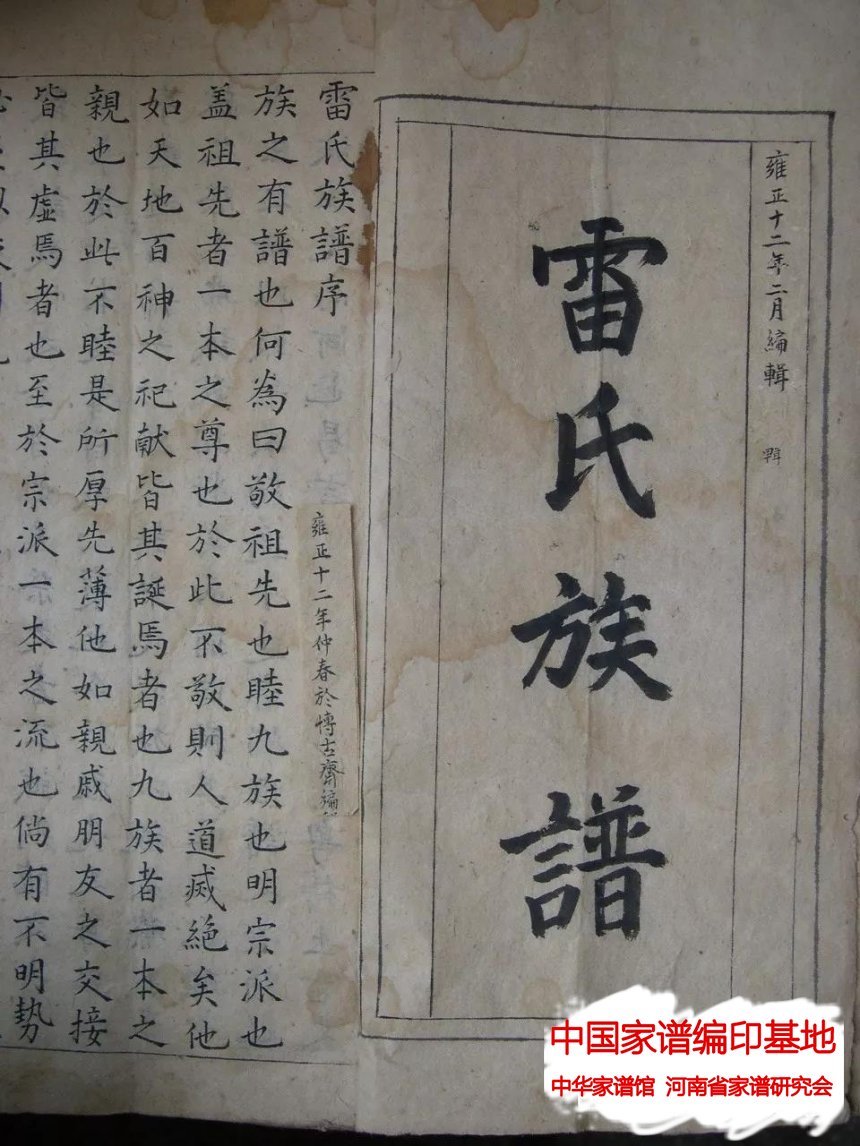 雍正十二年二月編輯
雷氏族譜
雷氏族譜序
雍正十二年仲春於博古齋編
族之有譜也何為曰敬祖先也睦九族也明宗派也
盖祖先者一本之尊也於此不敬則人道烕絕矣他
如天地百神之祀献皆其誕焉者也九族者一本之
親也於此不睦是所厚先薄他如親戚朋友之交接
皆其虛焉者也至於宗派一本之流也倘有不明勢
中国家谱编印基地
中华家谱馆 河南省家谱研究会